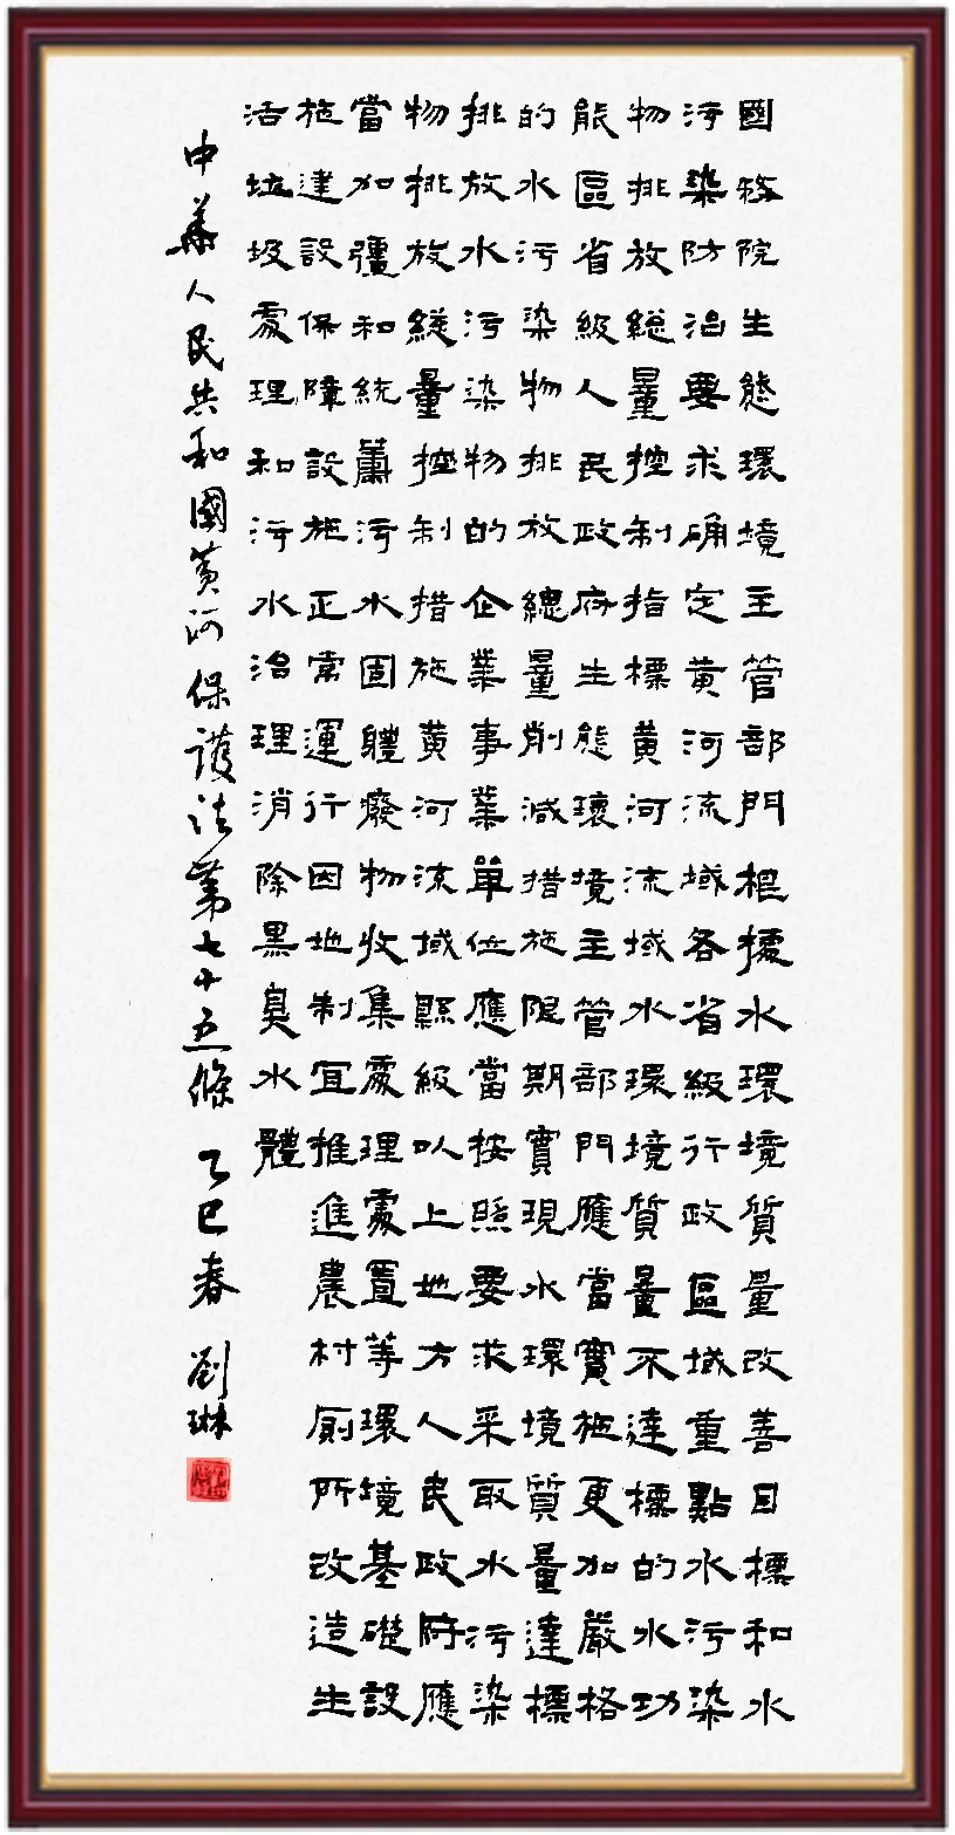 國務院生態環境主管部門根據水環境質量改善目標和水
污染防治要求确定黃河流域各省級行政區域重點水污染
物排放總量控制指標黃河流域水環境質量不達標的水功
能區省級人民政府生態環境主管部門應當實施更加嚴格
的水污染物排放總量削減措施限期實現水環境質量達標
排放水污染物的企業事業單位應當按照要求采取水污染
物排放總量控制措施黃河流域縣級以上地方人民政府應
當加彊和統籌污水固體廢物收集處理處置等環境基礎設
施建設保障設施正常運行因地制宜推進農村厠所改造生
活垃圾處理和污水治理消除黑臭水體
中華人民共和國黃河保護法第七十五條 乙巳春 劉琳